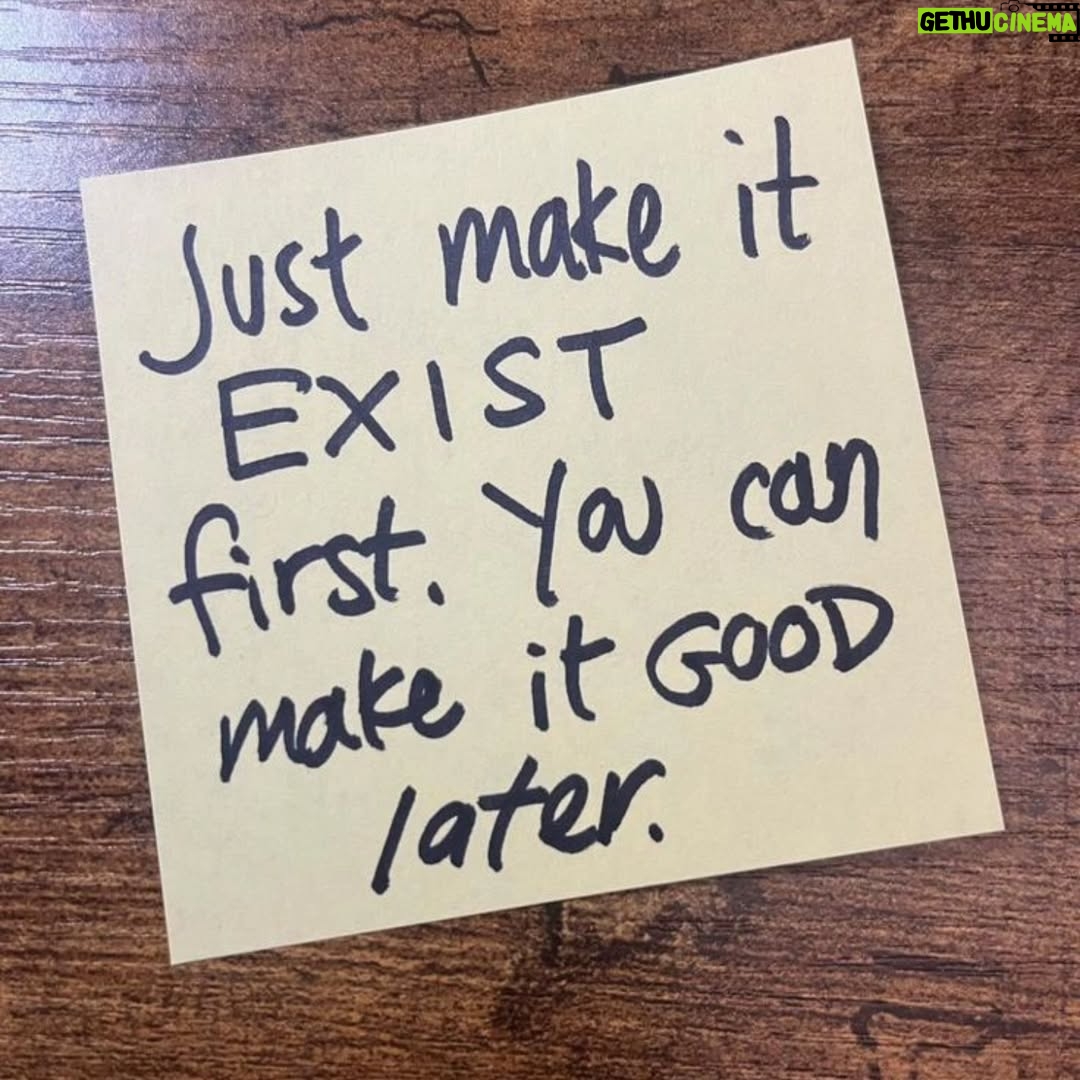 GETHUCINEMA
Just make it
EXIST
first. You can
make it GOOD
later.